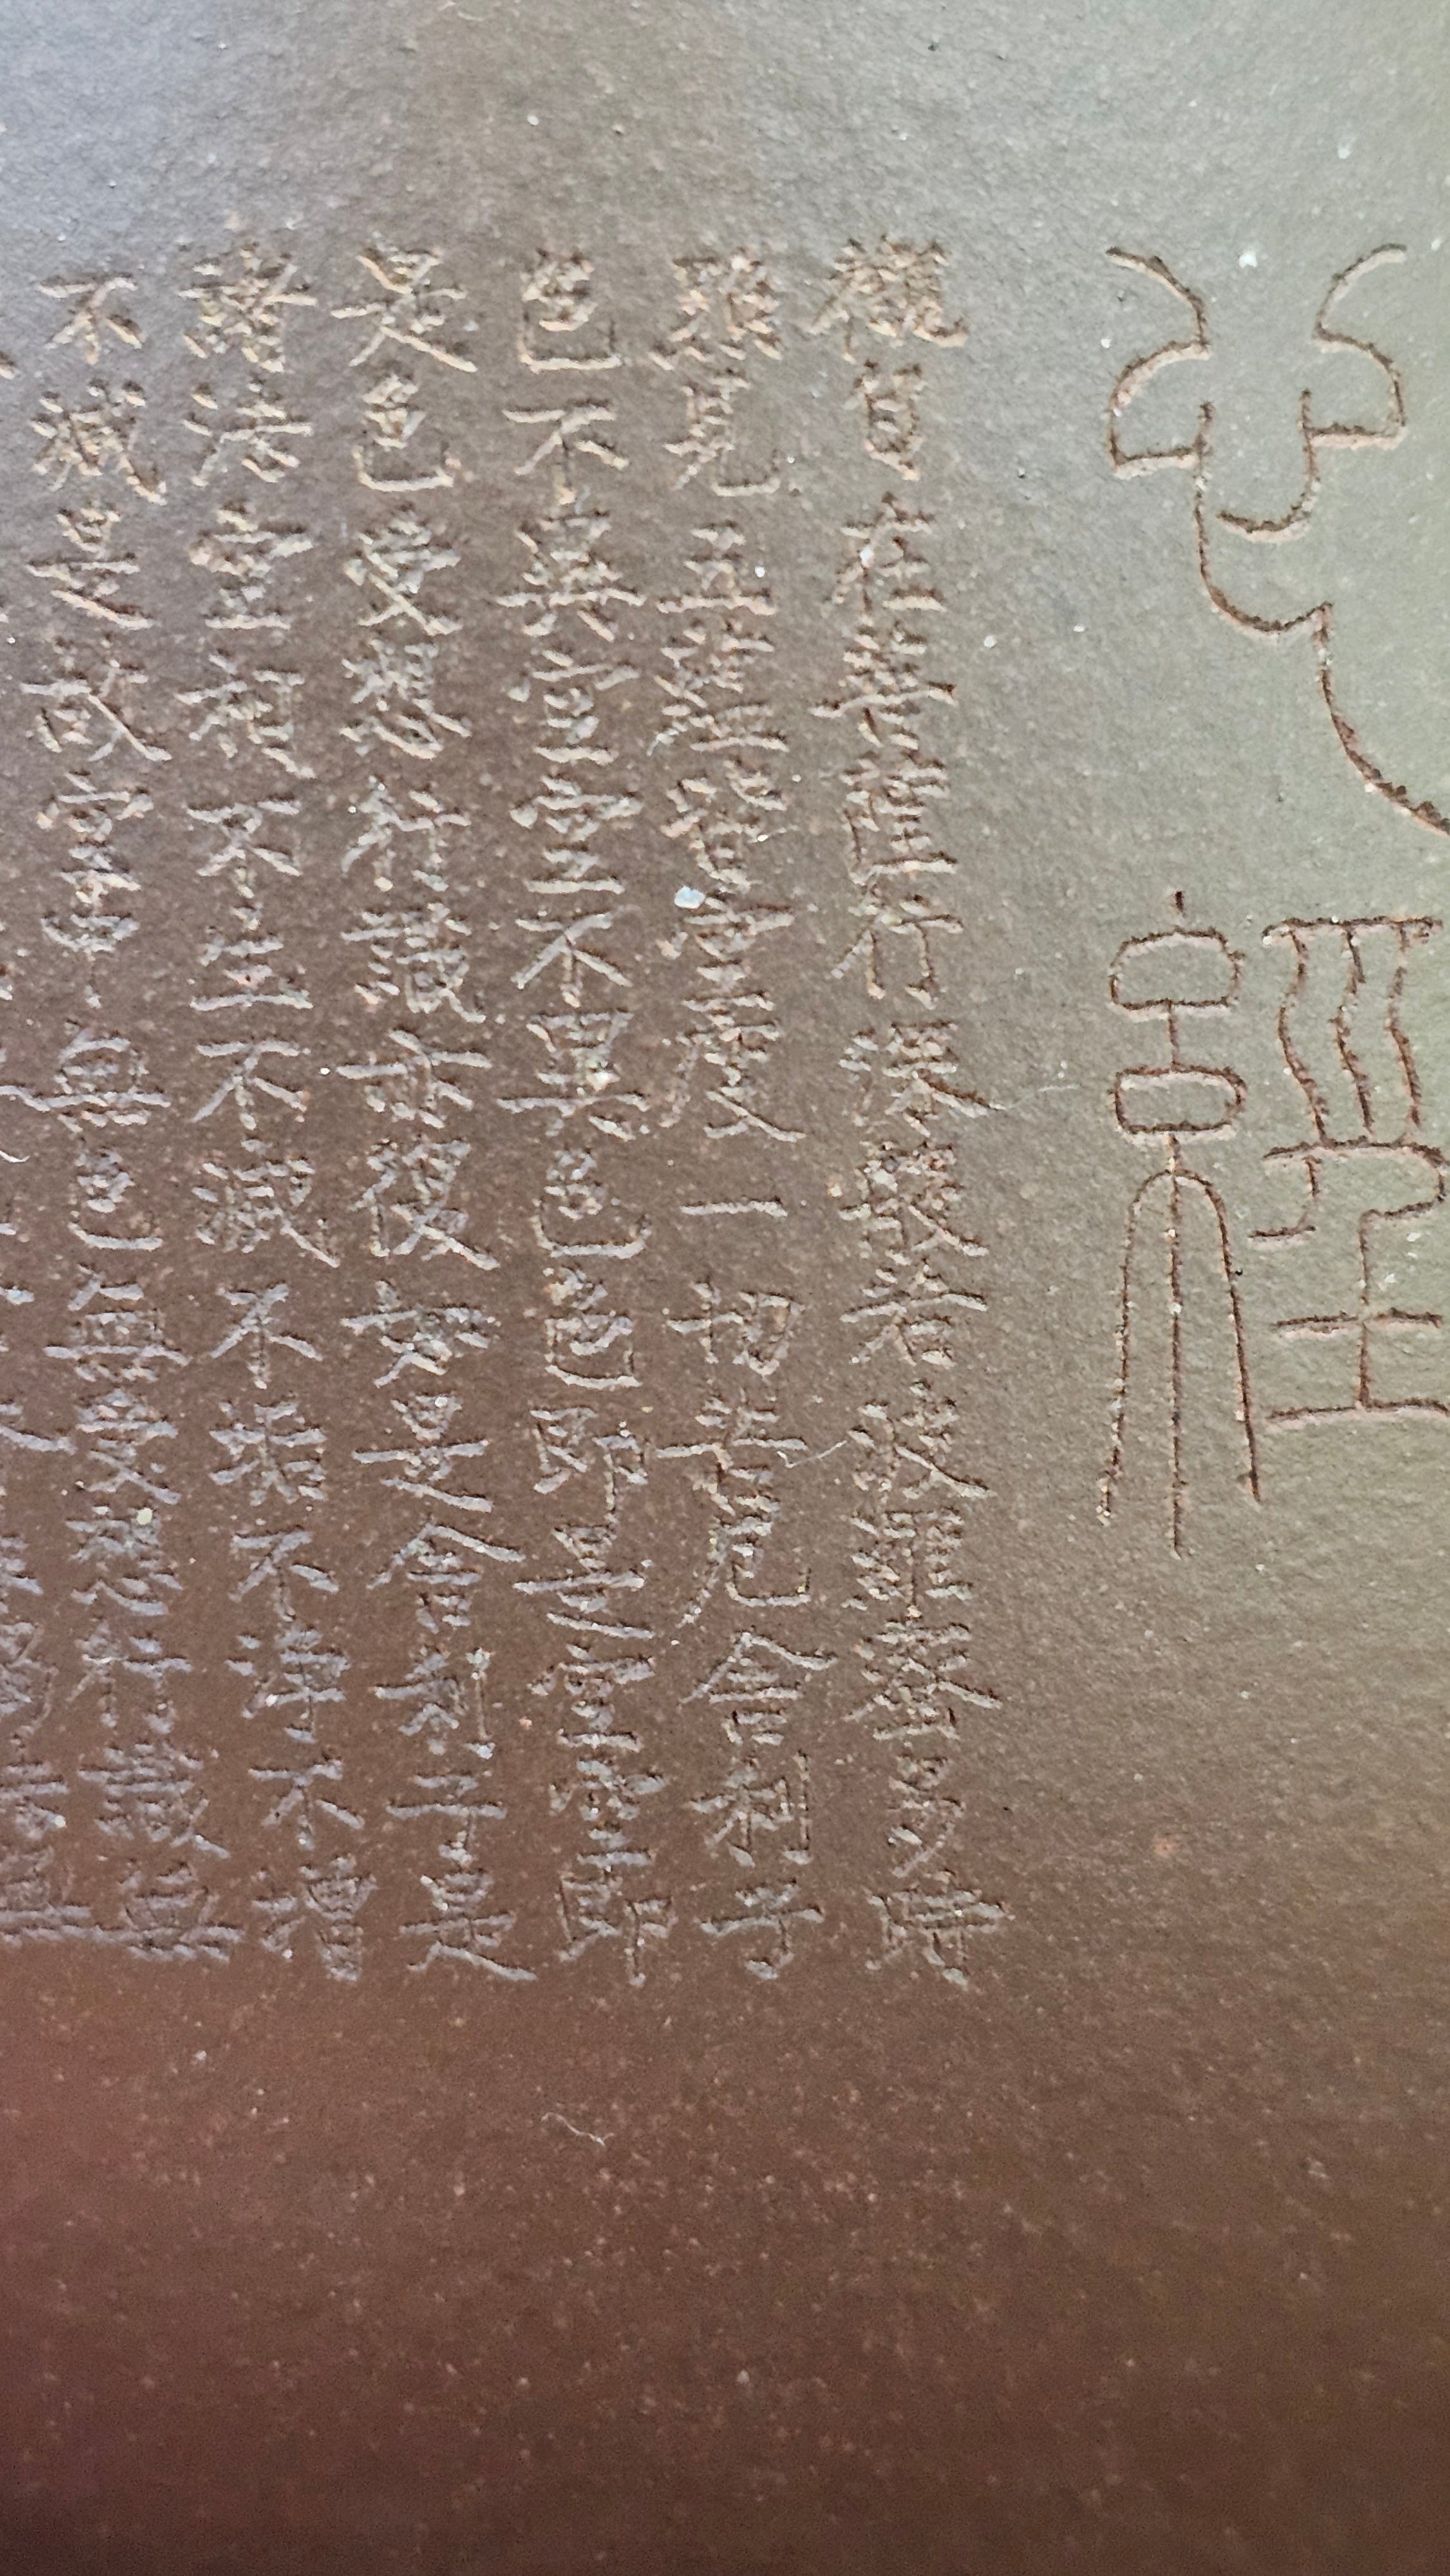 心經
觀自在菩薩行深般若波羅蜜多時
照見五蘊皆空度一切苦厄舍利子
色不異空空不異色色即是空空即
是色受想行識亦復如是舍利子是
諸法空相不生不滅不垢不淨不增
不減是故空中無色無受想行識無